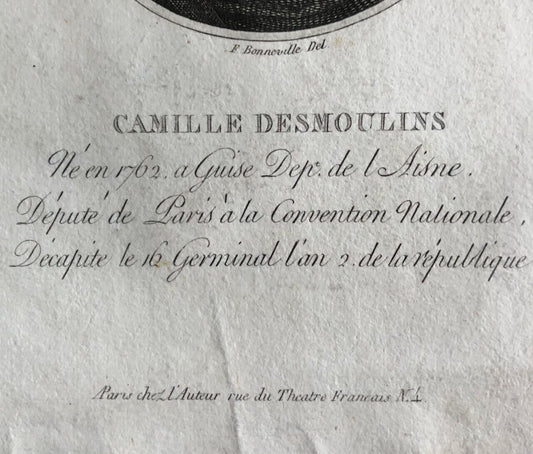 F. Bonneville Del.
CAMILLE DESMOULINS
Né en 1762. a Guise Depᵗ. de l'Aisne.
Député de Paris à la Convention Nationale,
Décapite le 16 Germinal l'an 2. de la république
A Paris chez l'Auteur rue du Theatre Francais N.4.